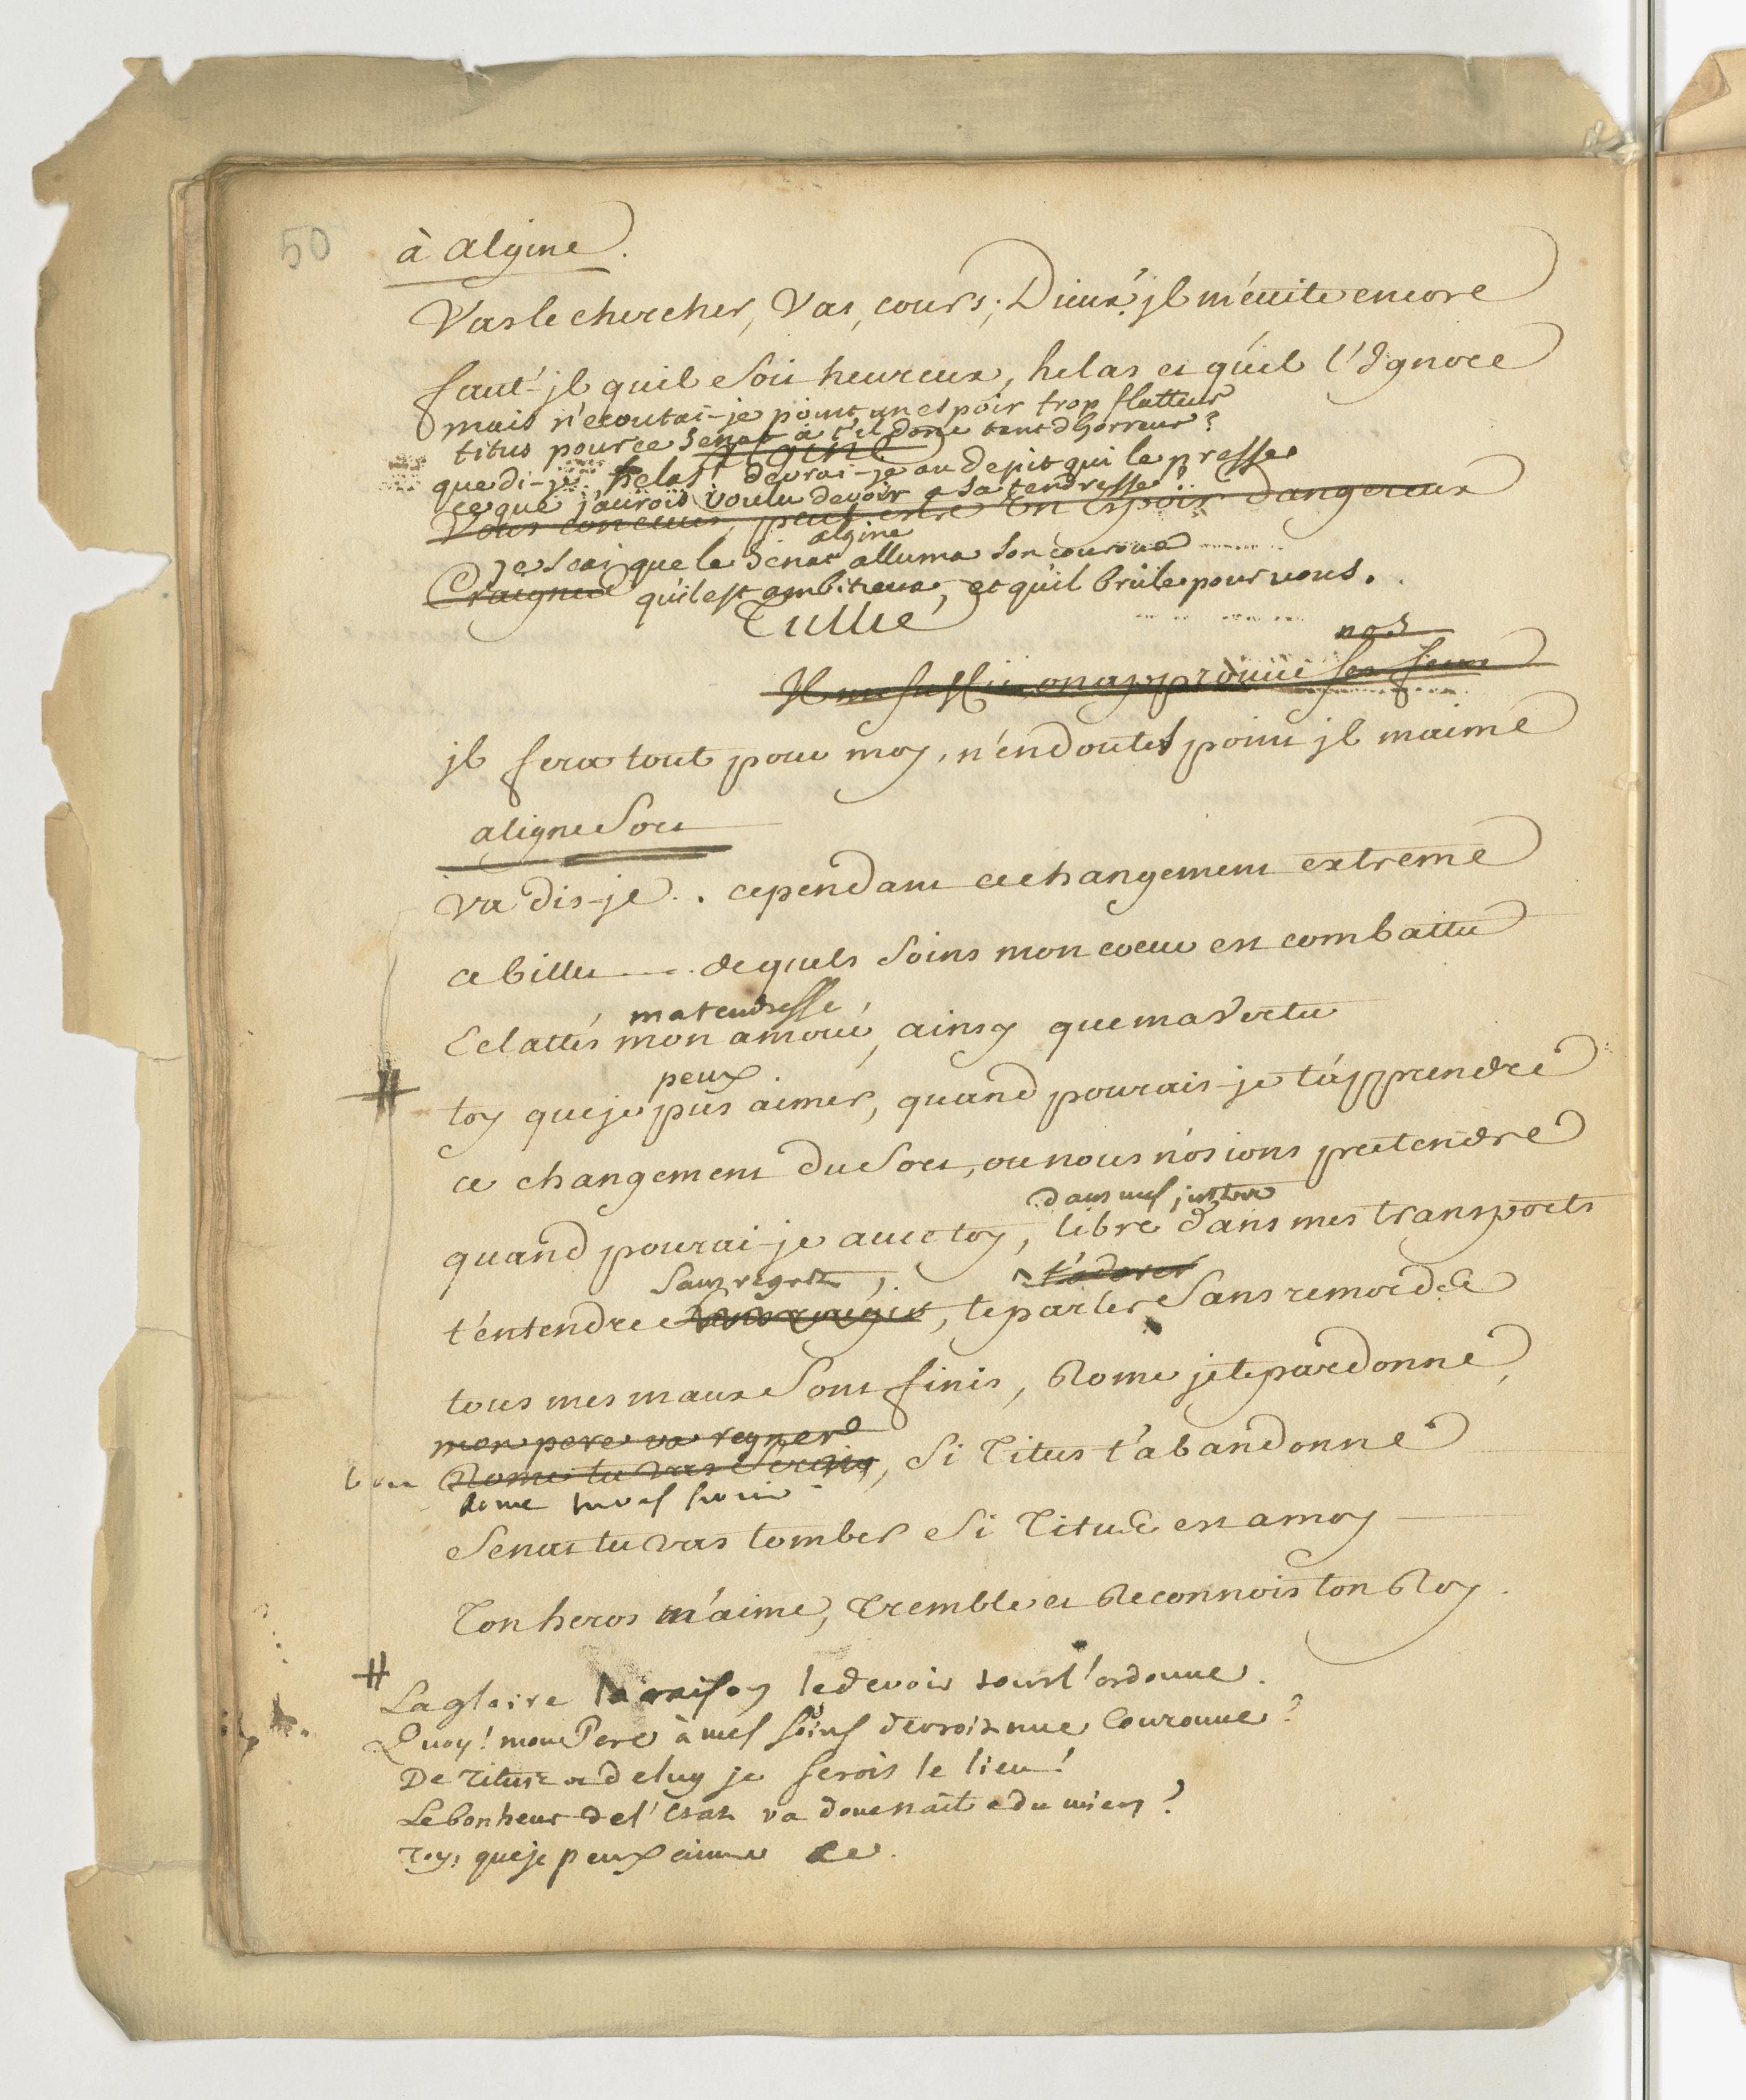 50
à Algine.
Vas le chercher, Vas, cours; Dieux! jl m'euite encore
faut-jl quil Soit heureux, helas et qu'il l'Ignore
mais n'ecoutai-je point un espoir trop flatteur
titus pour ce senat a t'il donc tant d'horreur?
Algine
que di-je helas! devrai-je au depit qui le presse
ce que j'aurois voulu devoir a sa tendresse?
Vous concevez peut estre Un Espoir Dangereux
algine
je scai que le Senat alluma son couroux
Craignez qu'il est ambitieux, et qu'il brûle pour vous.
Tullie
nos
Il me suffit, on approuve ses feux
jl fera tout pour moy, n'en doutes point jl m'aime
algine Sort
Va dis-je.. cependant ce changement extreme
ce billet .... de quels Soins mon coeur est combattu
ma tendresse,
Eclattés mon amour, ainsy que ma Vertu
peux
toy que je puis aimer, quand pourais-je t'apprendre
ce changement du Sort, ou nous n'osions pretendre
dans mes justes
quand pourai-je avec toy, libre dans mes transports
Sans regret, t'adorer
t'entendre, te parler Sans remords
tous mes maux Sont finis, Rome je te pardonne,
mon pere va regner
Rome tu vas Servir, Si Titus t'abandonne
Rome tu vas servir
Senat tu vas tomber Si Titus est a moy
Ton heros m'aime, Tremble et Reconnois ton Roy.
La gloire la raison le devoir tout l'ordonne.
Quoy! mon Pere à mes soins devroit une Couronne?
De Titus et de luy je serois le lien!
Le bonheur de l'Etat va donc naitre du mien?
Toy, que je peux aimer &c.